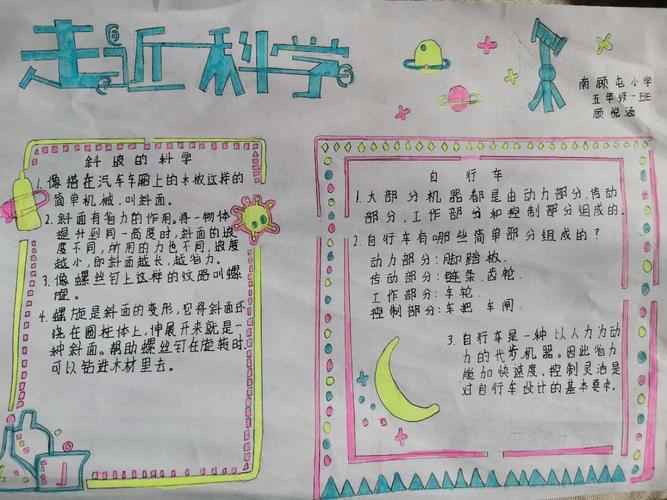 走近科学
南顾屯小学
五年级一班
顾悦涵
斜坡的科学
1.像搭在汽车车厢上的木板这样的
简单机械,叫斜面。
2.斜面有省力的作用。将一物体
提升到同一高度时,斜面的坡
度不同,所用的力也不同,坡度
越小,即斜面越长,越省力。
3.像螺丝钉上这样的纹路叫螺
旋。
4.螺旋是斜面的变形,它将斜面环
绕在圆柱体上,伸展开来就是一
种斜面。帮助螺丝钉在旋转时
可以钻进木材里去。
自行车
1.大部分机器都是由动力部分、传动
部分、工作部分和控制部分组成的。
2.自行车有哪些简单部分组成的?
动力部分:脚踏板.
传动部分:链条.齿轮.
工作部分:车轮.
控制部分:车把 车闸.
3.自行车是一种以人力为动
力的代步机器。因此省力
能加快速度、控制灵活是
对自行车设计的基本要求。